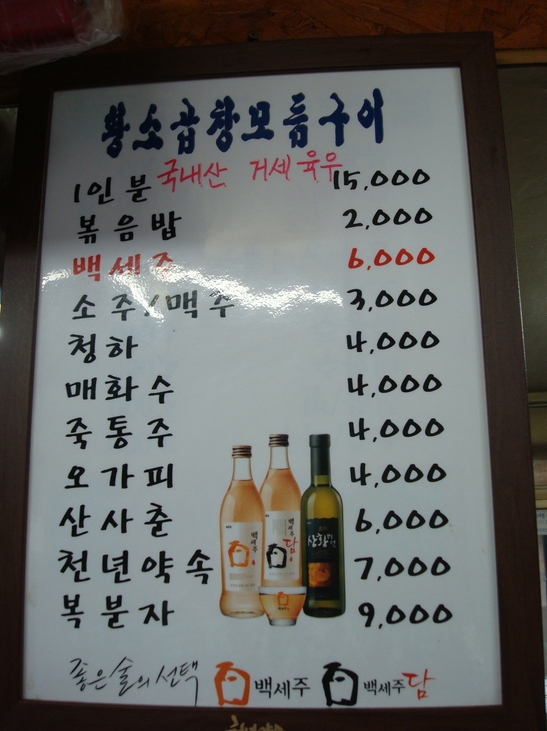 황소곱창모듬구이
국내산 거세 육우
1인분 15,000
볶음밥 2,000
백세주 6,000
소주/맥주 3,000
청하 4,000
매화수 4,000
죽통주 4,000
오가피 4,000
산사춘 6,000
천년약속 7,000
복분자 9,000
백세주
백세주 담
좋은술의선택 백세주 백세주담